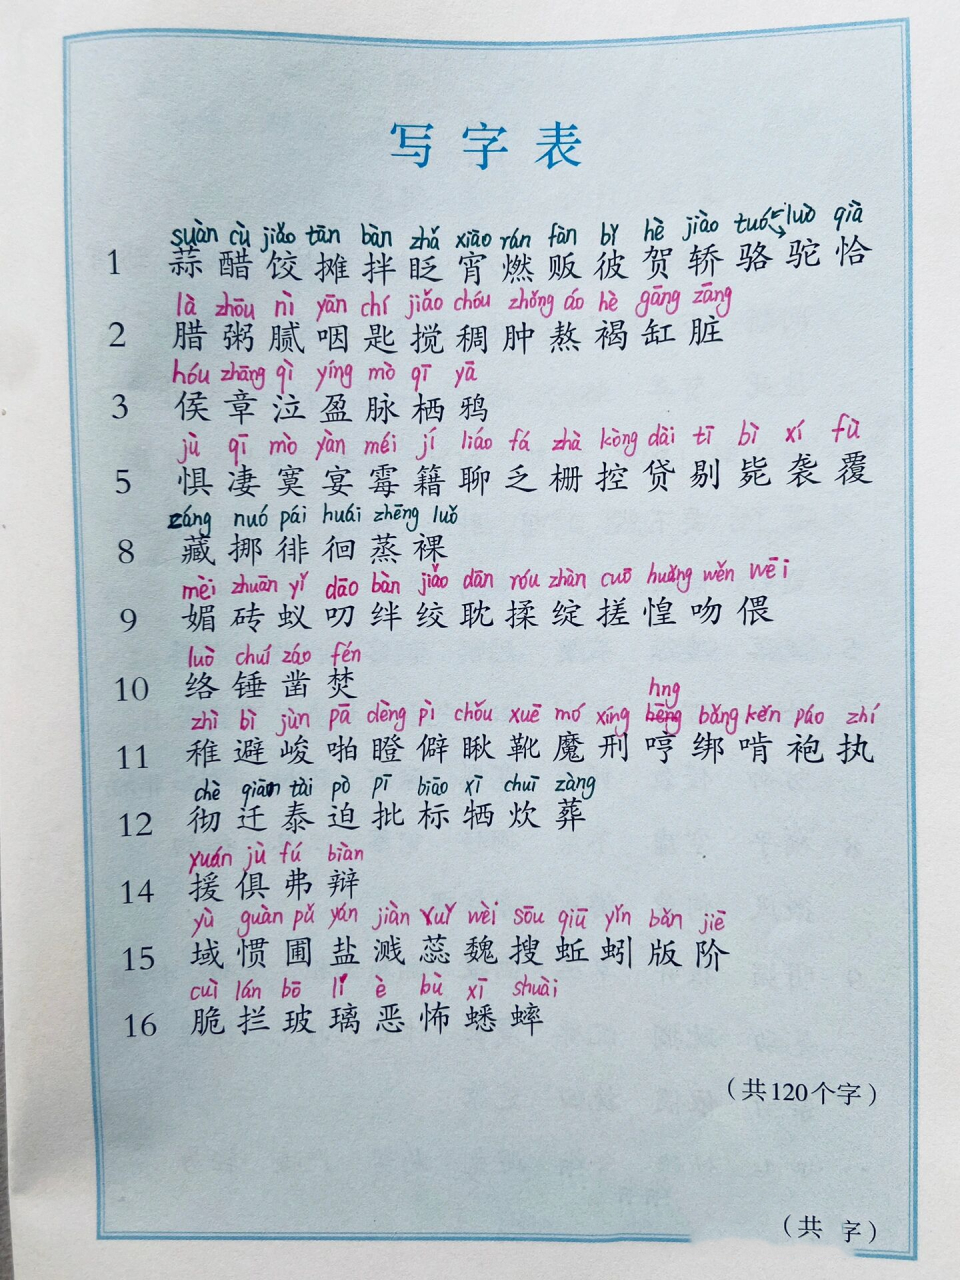 写字表
suàn cù jiǎo tān bàn zhǎ xiāo rán fàn bǐ hè jiào tuó luò qià
1 蒜 醋 饺 摊 拌 眨 宵 燃 贩 彼 贺 轿 骆 驼 恰
là zhōu nì yān chí jiǎo chóu zhǒng áo hè gāng zāng
2 腊 粥 腻 咽 匙 搅 稠 肿 熬 褐 缸 脏
hóu zhāng qì yíng mò qī yā
3 侯 章 泣 盈 脉 栖 鸦
jù qī mò yàn méi jí liáo fá zhà kòng dài tī bì xí fù
5 惧 凄 寞 宴 霉 籍 聊 乏 栅 控 贷 剔 毙 袭 覆
záng nuó pái huái zhēng luǒ
8 藏 挪 徘 徊 蒸 裸
mèi zhuān yǐ dāo bàn jiǎo dān róu zhàn cuō huǎng wěn wēi
9 媚 砖 蚁 叨 绊 绞 耽 揉 绽 搓 惶 吻 偎
luò chuí záo fén
10 络 锤 凿 焚
hng
zhì bì jùn pā dèng pì chǒu xuē mó xíng hēng bǎng kěn páo zhí
11 稚 避 峻 啪 瞪 僻 瞅 靴 魔 刑 哼 绑 啃 袍 执
chè qiān tài pò pī biāo xī chuī zàng
12 彻 迁 泰 迫 批 标 牺 炊 葬
yuán jù fú biàn
14 援 俱 弗 辩
yù guàn pǔ yán jiàn ruǐ wèi sōu qiū yǐn bǎn jiē
15 域 惯 圃 盐 溅 蕊 魏 搜 蚯 蚓 版 阶
cuì lán bō lí è bù xī shuài
16 脆 拦 玻 璃 恶 怖 蟋 蟀
（共120个字）
（共 字）